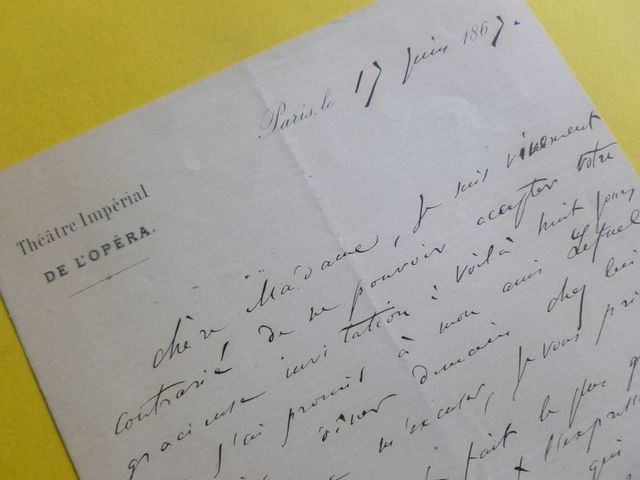 Théâtre Impérial
DE L'OPÉRA.
Paris, le 17 juin 1867.
chère Madame, Je suis vivement
contrarié de ne pouvoir accepter votre
gracieuse invitation à voilà huit jours
j'ai promis à mon ami
dîner demain chez lui
m'excuser, je vous prie
fait le plus
qui